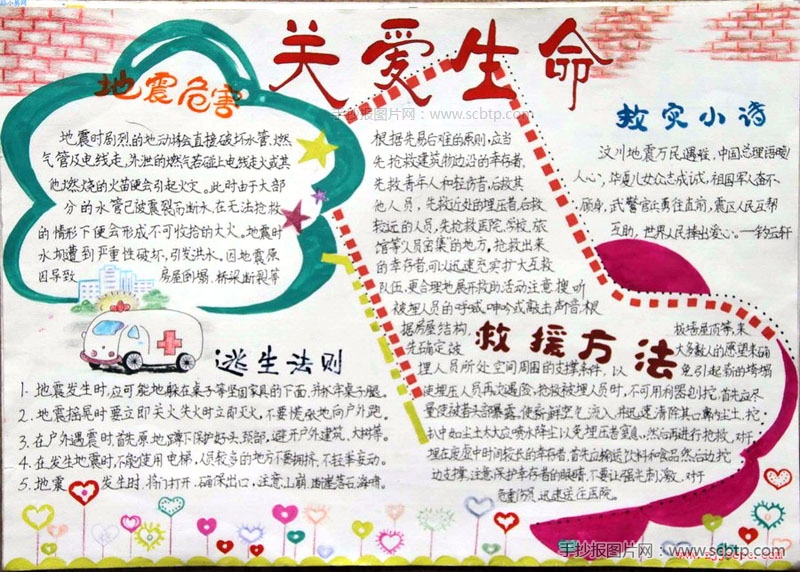 关爱生命
手抄报图片网 - www.scbtp.com
地震危害
地震时剧烈的地动将会直接破坏水管,燃
气管及电线走,外泄的燃气若碰上电线走火或其
他燃烧的火苗便会引起火灾。此时由于大部
分的水管已被震裂而断水,在无法抢救
的情形下便会形成不可收拾的大火。地震时
水坝遭到严重性破坏,引发洪水。因地震原
因导致 房屋倒塌,桥梁断裂等
逃生法则
1.地震发生时,应可能地躲在桌子等坚固家具的下面,并抓牢桌子腿。
2.地震摇晃时要立即关火失火时立即灭火,不要慌张地向户外跑。
3.在户外遇震时首先原地蹲下保护好头颈部,避开户外建筑、大树等。
4.在发生地震时,不能使用电梯,人员较多的地方不要拥挤,不轻率妄动。
5.地震 发生时,将门打开,确保出口,注意山崩
根据先易后难的原则,应当
先抢救建筑物边沿的幸存者,
先救青年人和轻伤者,后救其
他人员,先救近处的埋压者,后救
较远的人员,先抢救医院,学校,旅
馆等人员密集的地方,抢救出来
的幸存者,可以迅速充实扩大互救
队伍,更合理地展开救助活动注意搜听
被埋人员的呼喊,呻吟或敲击声音,根
据房屋结构,
先确定被
救援方法
大多数人的愿望来确
埋人员所处空间周围的支撑条件,以免引起新的垮塌
使埋压人员再次遇险,抢救被埋人员时,不可用利器刨挖,首先应尽
量使被者头部暴露,使新鲜空气流入,并迅速清除其口鼻内尘土,挖
扒中如尘土太大应喷水降尘以免埋压者窒息,然后再进行抢救,对于
埋在废墟中时间较长的幸存者,首先应输送饮料和食品然后边挖
边支撑,注意保护幸存者的眼睛,不要让强光刺激,对于
危重伤员迅速送往医院。
救灾小诗
汶川地震万民遇难,中国总理语暖
人心,华夏儿女众志成诚,祖国军人奋不
顾身,武警官兵勇往直前,震区人民互帮
互助,世界人民捧出爱心。
手抄报图片网 www.scbtp.com